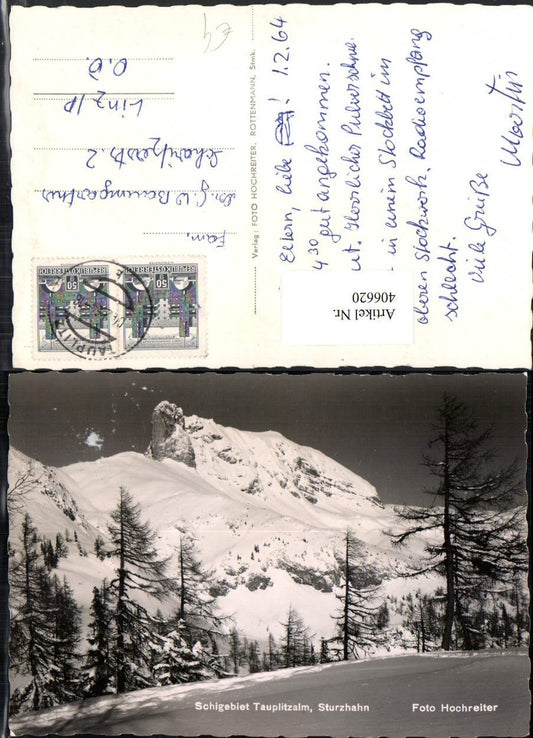 Eltern, liebe ! 1.2.64
4 30 gut angekommen.
ut. Herrlicher Pulverschnee.
- in einem Stockbett im
oberen Stockwerk. Radioempfang
schlecht.
Viele Grüße
Martin
Verlag: FOTO HOCHREITER, ROTTENMANN, Stmk.
Fam.
Baumgartner
2
Linz/D
O.Ö
REPUBLIK ÖSTERREICH
50
REPUBLIK ÖSTERREICH
50
TAUPLITZ
Artikel Nr.
406620
Schigebiet Tauplitzalm, Sturzhahn
Foto Hochreiter